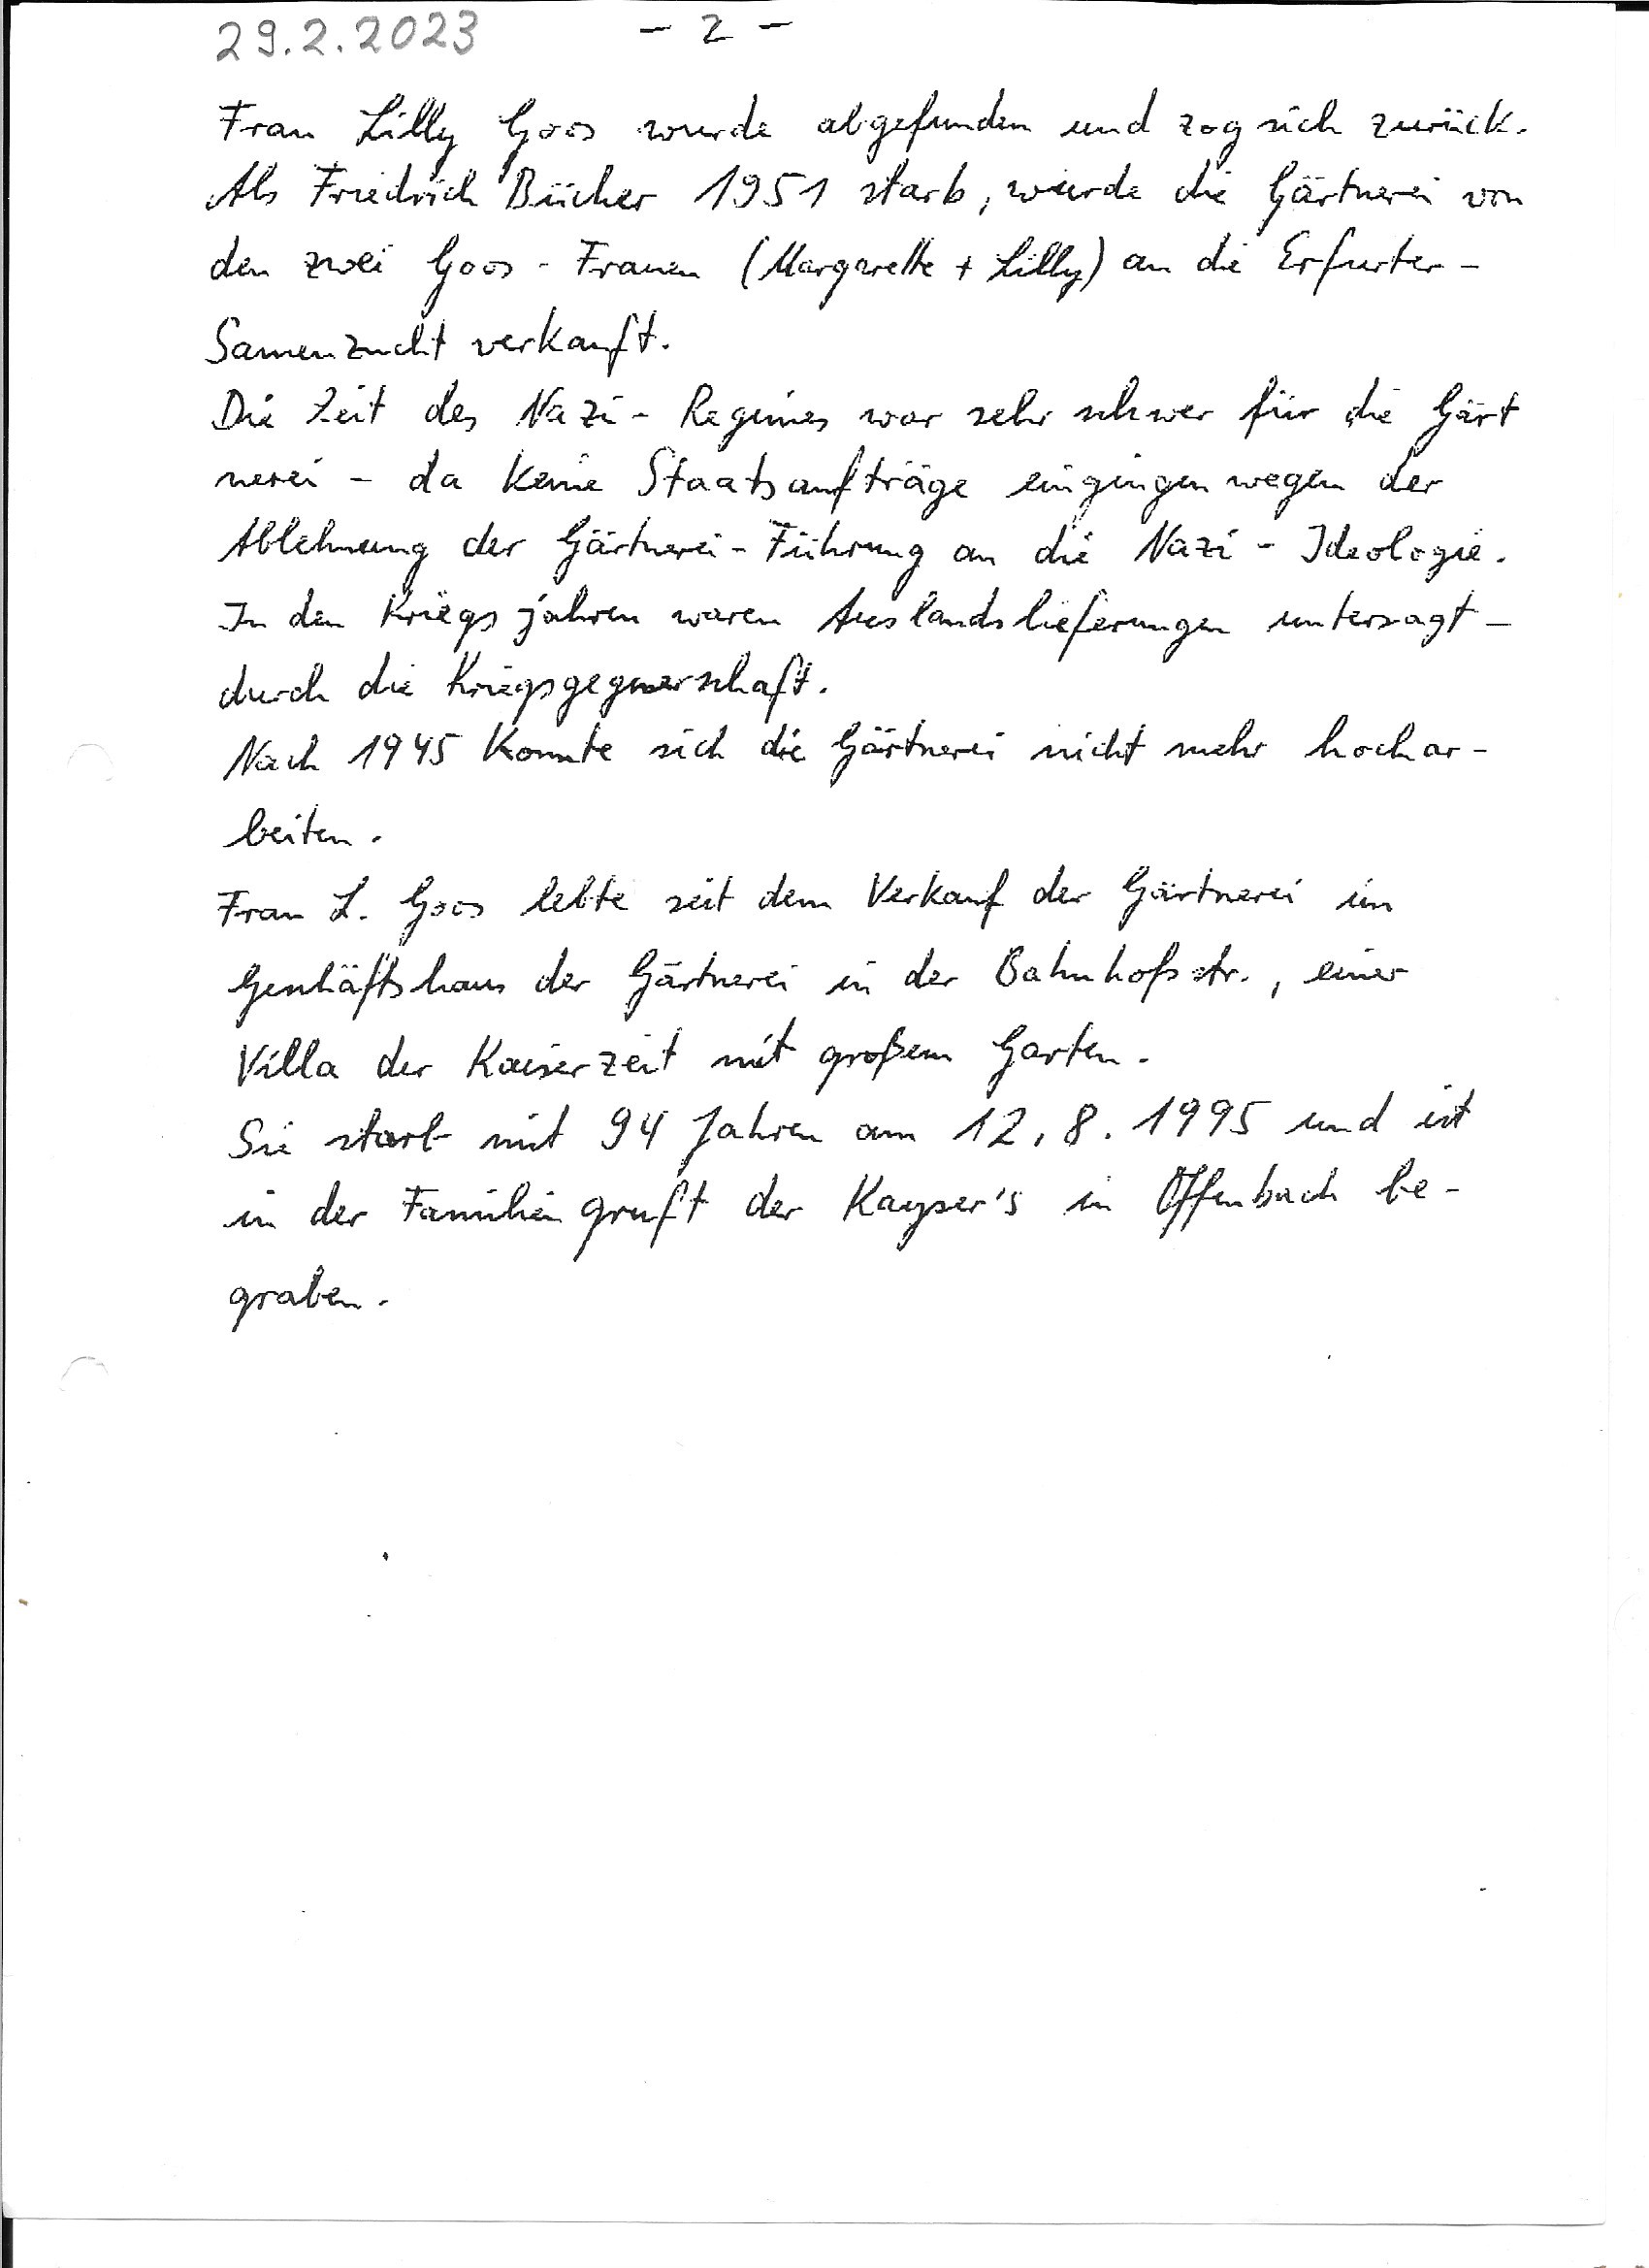 29.2.2023 - 2 -
Frau Lilly Goos wurde abgefunden und zog sich zurück.
Als Friedrich Bücher 1951 starb, wurde die Gärtnerei von
den zwei Goos - Frauen (Margarette + Lilly) an die Erfurter -
Samenzucht verkauft.
Die Zeit des Nazi - Regimes war sehr schwer für die Gärt
nerei - da keine Staatsaufträge eingingen wegen der
Ablehnung der Gärtnerei - Führung an die Nazi - Ideologie.
In den Kriegsjahren waren Auslandslieferungen untersagt -
durch die Kriegsgegnerschaft.
Nach 1945 konnte sich die Gärtnerei nicht mehr hochar -
beiten.
Frau L. Goos lebte seit dem Verkauf der Gärtnerei im
Geschäftshaus der Gärtnerei in der Bahnhofsstr., einer
Villa der Kaiserzeit mit großem Garten.
Sie starb mit 94 Jahren am 12.8.1995 und ist
in der Familiengruft der Kayser's in Offenbach be -
graben.